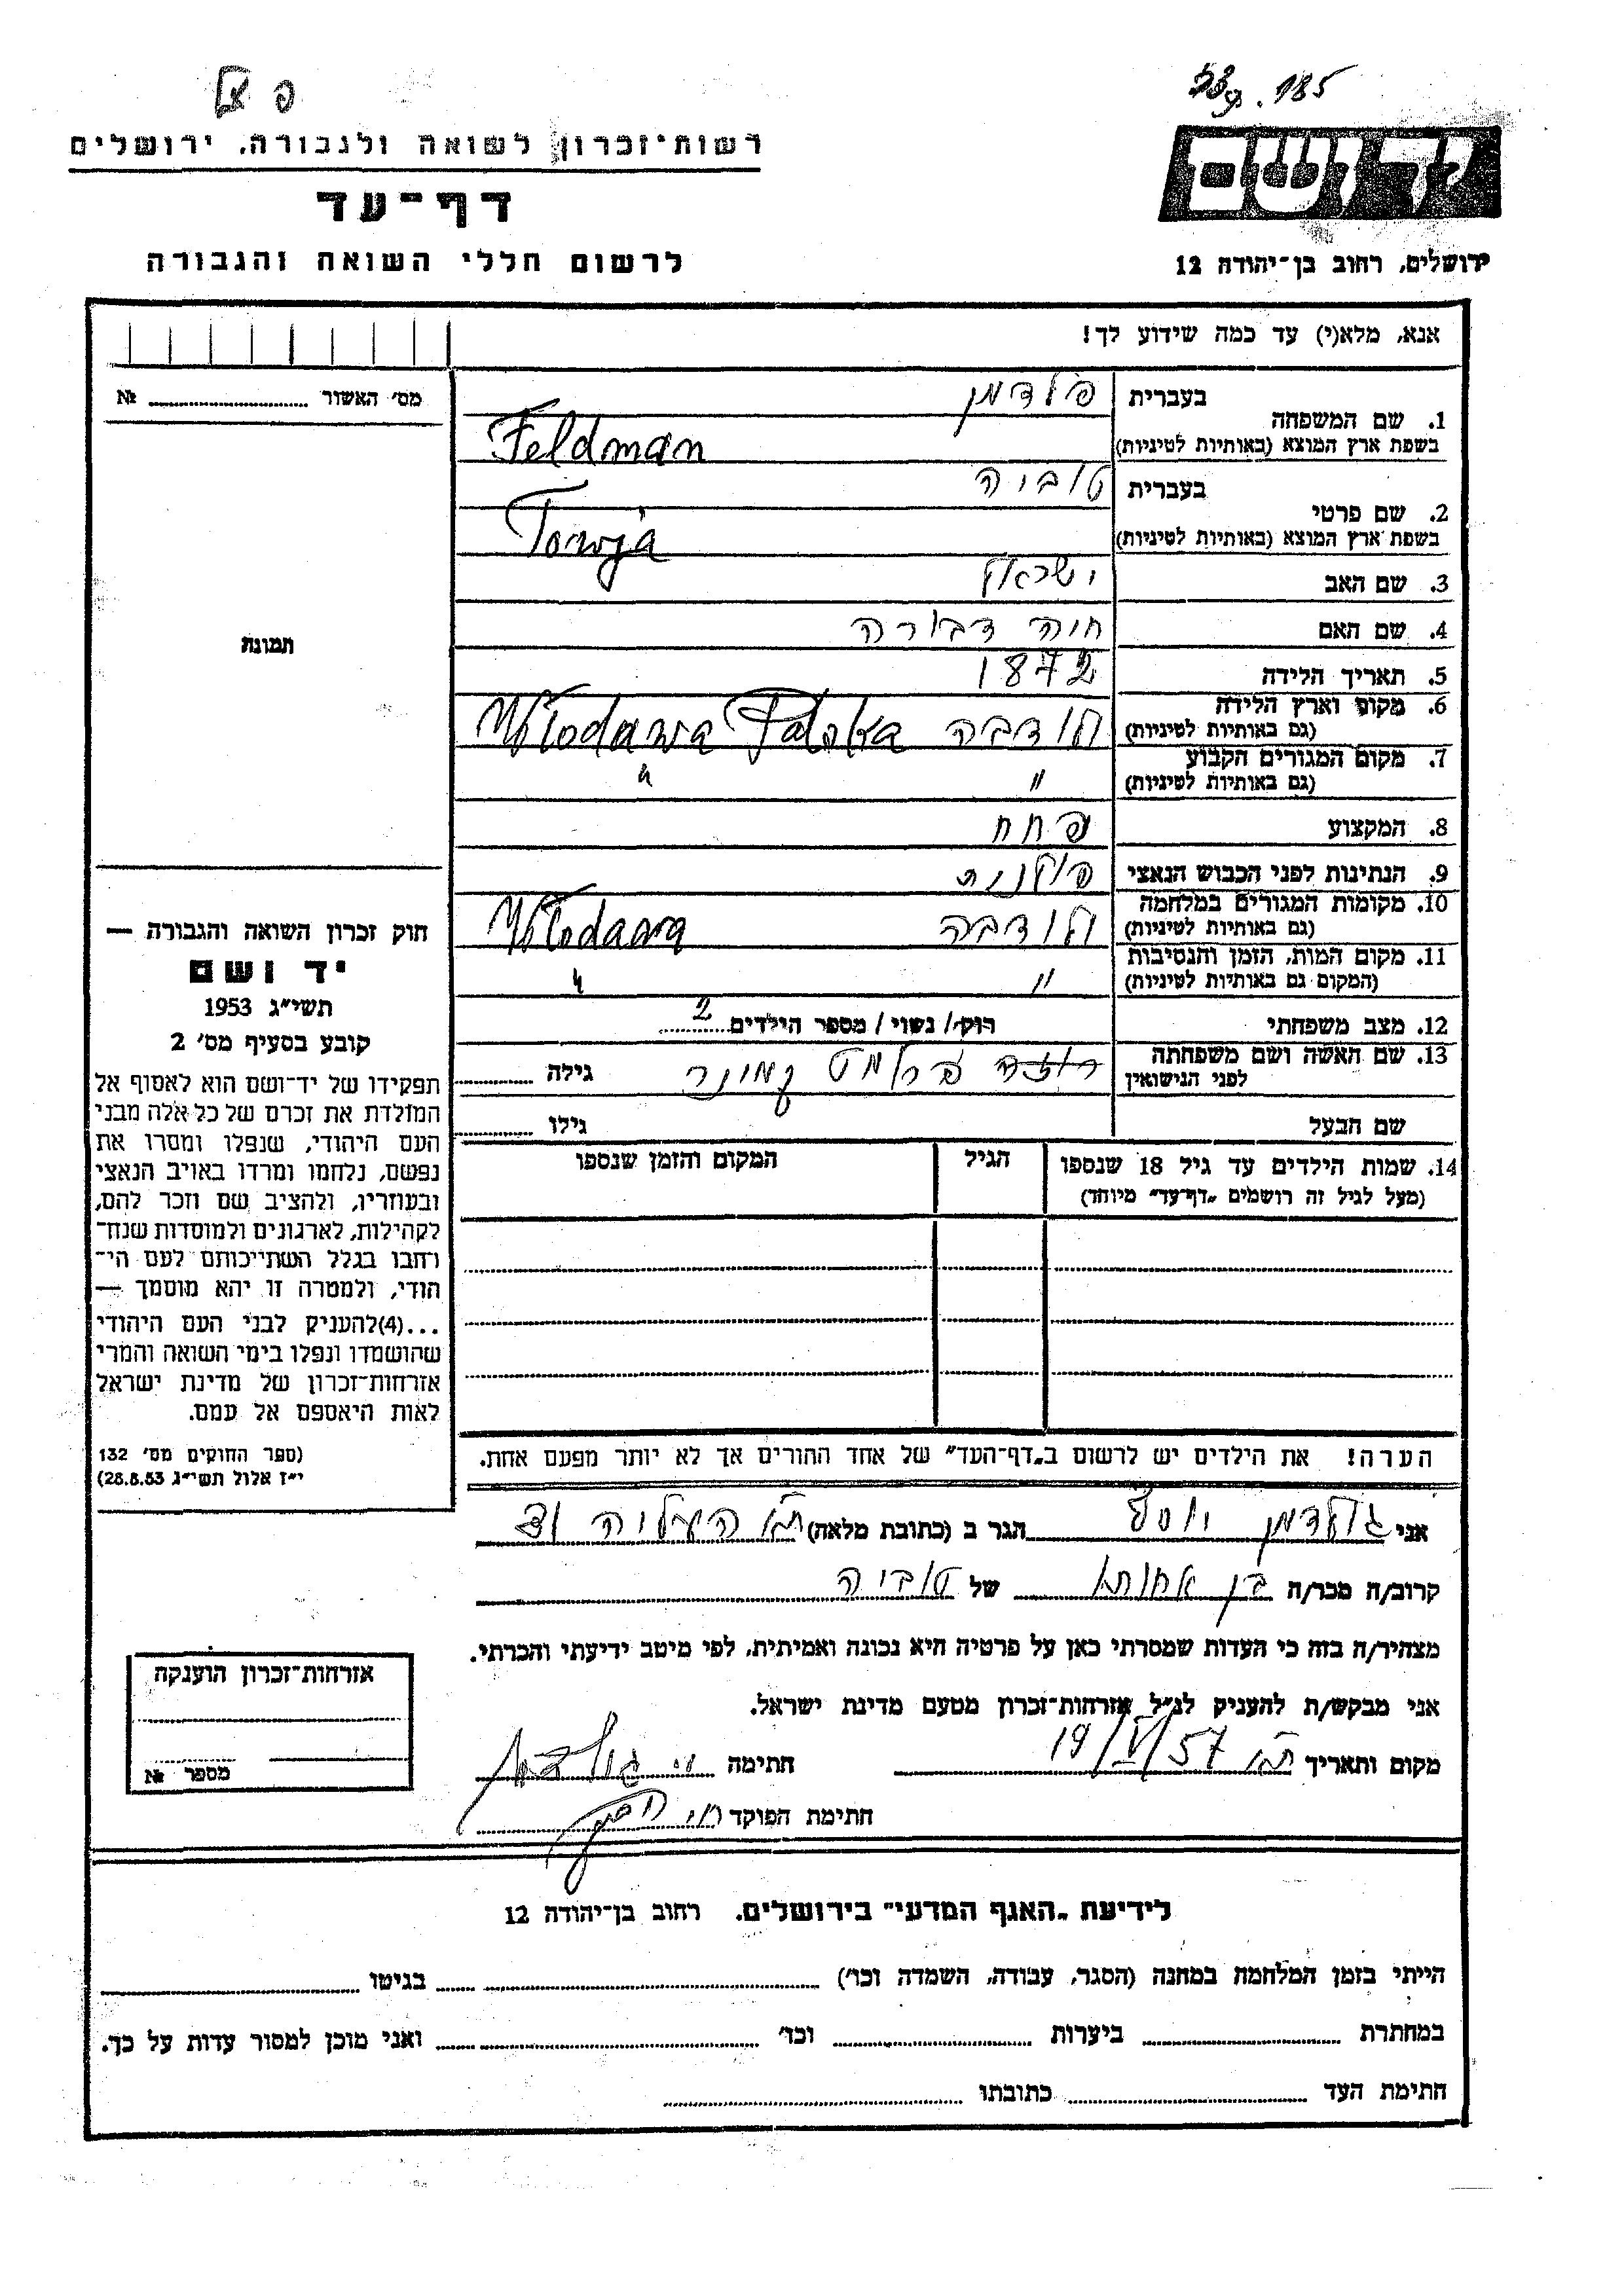 פ אצ
33g. 185
רשות-זכרון לשואה ולגבורה, ירושלים
יד ושם
דף-עד
לרשום חללי השואה והגבורה
ירושלים, רחוב בן-יהודה 12
אנא, מלא(י) עד כמה שידוע לך!
מס' האשור № 
1. שם המשפחה
בעברית פלדמן
בשפת ארץ המוצא (באותיות לטיניות) Feldman
2. שם פרטי
בעברית טוביה
בשפת ארץ המוצא (באותיות לטיניות) Towja
3. שם האב ישראל
4. שם האם חיה דבורה
5. תאריך הלידה 1872
6. מקום וארץ הלידה
(גם באותיות לטיניות) ולודבה Włodawa Polska
7. מקום המגורים הקבוע
(גם באותיות לטיניות) " "
8. המקצוע פחח
9. הנתינות לפני הכבוש הנאצי פולנית
10. מקומות המגורים במלחמה
(גם באותיות לטיניות) ולודבה Włodawa
11. מקום המות, הזמן והנסיבות
(המקום גם באותיות לטיניות) " "
12. מצב משפחתי רוק/ נשוי/ מספר הילדים 2
13. שם האשה ושם משפחתה
לפני הנישואין גילה
שם הבעל גילו
14. שמות הילדים עד גיל 18 שנספו
(מעל לגיל זה רושמים „דף-עד" מיוחד)
הגיל
המקום והזמן שנספו
הערה! את הילדים יש לרשום ב„דף-העד" של אחד ההורים אך לא יותר מפעם אחת.
תמונה
חוק זכרון השואה והגבורה —
יד ושם
תשי"ג 1953
קובע בסעיף מס' 2
תפקידו של יד-ושם הוא לאסוף אל
המולדת את זכרם של כל אלה מבני
העם היהודי, שנפלו ומסרו את
נפשם, נלחמו ומרדו באויב הנאצי
ובעוזריו, ולהציב שם וזכר להם,
לקהילות, לארגונים ולמוסדות שנח-
רחבו בגלל השתייכותם לעם הי-
הודי, ולמטרה זו יהא מוסמך —
...(4)להעניק לבני העם היהודי
שהושמדו ונפלו בימי השואה והמרי
אזרחות-זכרון של מדינת ישראל
לאות היאספם אל עמם.
(ספר החוקים מס' 132
י"ז אלול תשי"ג 28.8.53)
אני גולדמן יוסף הגר ב (כתובת מלאה) ת"א העליה
קרוב/ה מכר/ה בן אחותו של טוביה
מצהיר/ה בזה כי העדות שמסרתי כאן על פרטיה היא נכונה ואמיתית, לפי מיטב ידיעתי והכרתי.
אני מבקש/ת להעניק לנ"ל אזרחות-זכרון מטעם מדינת ישראל.
מקום ותאריך ת"א 19/V/57 חתימה י. גולדמן
חתימת הפוקד
אזרחות-זכרון הוענקה
מספר №
לידיעת „האגף המדעי" בירושלים. רחוב בן-יהודה 12
הייתי בזמן המלחמה במחנה (הסגר, עבודה, השמדה וכו') בגיטו
במחתרת ביערות וכו' ואני מוכן למסור עדות על כך.
חתימת העד כתובתו